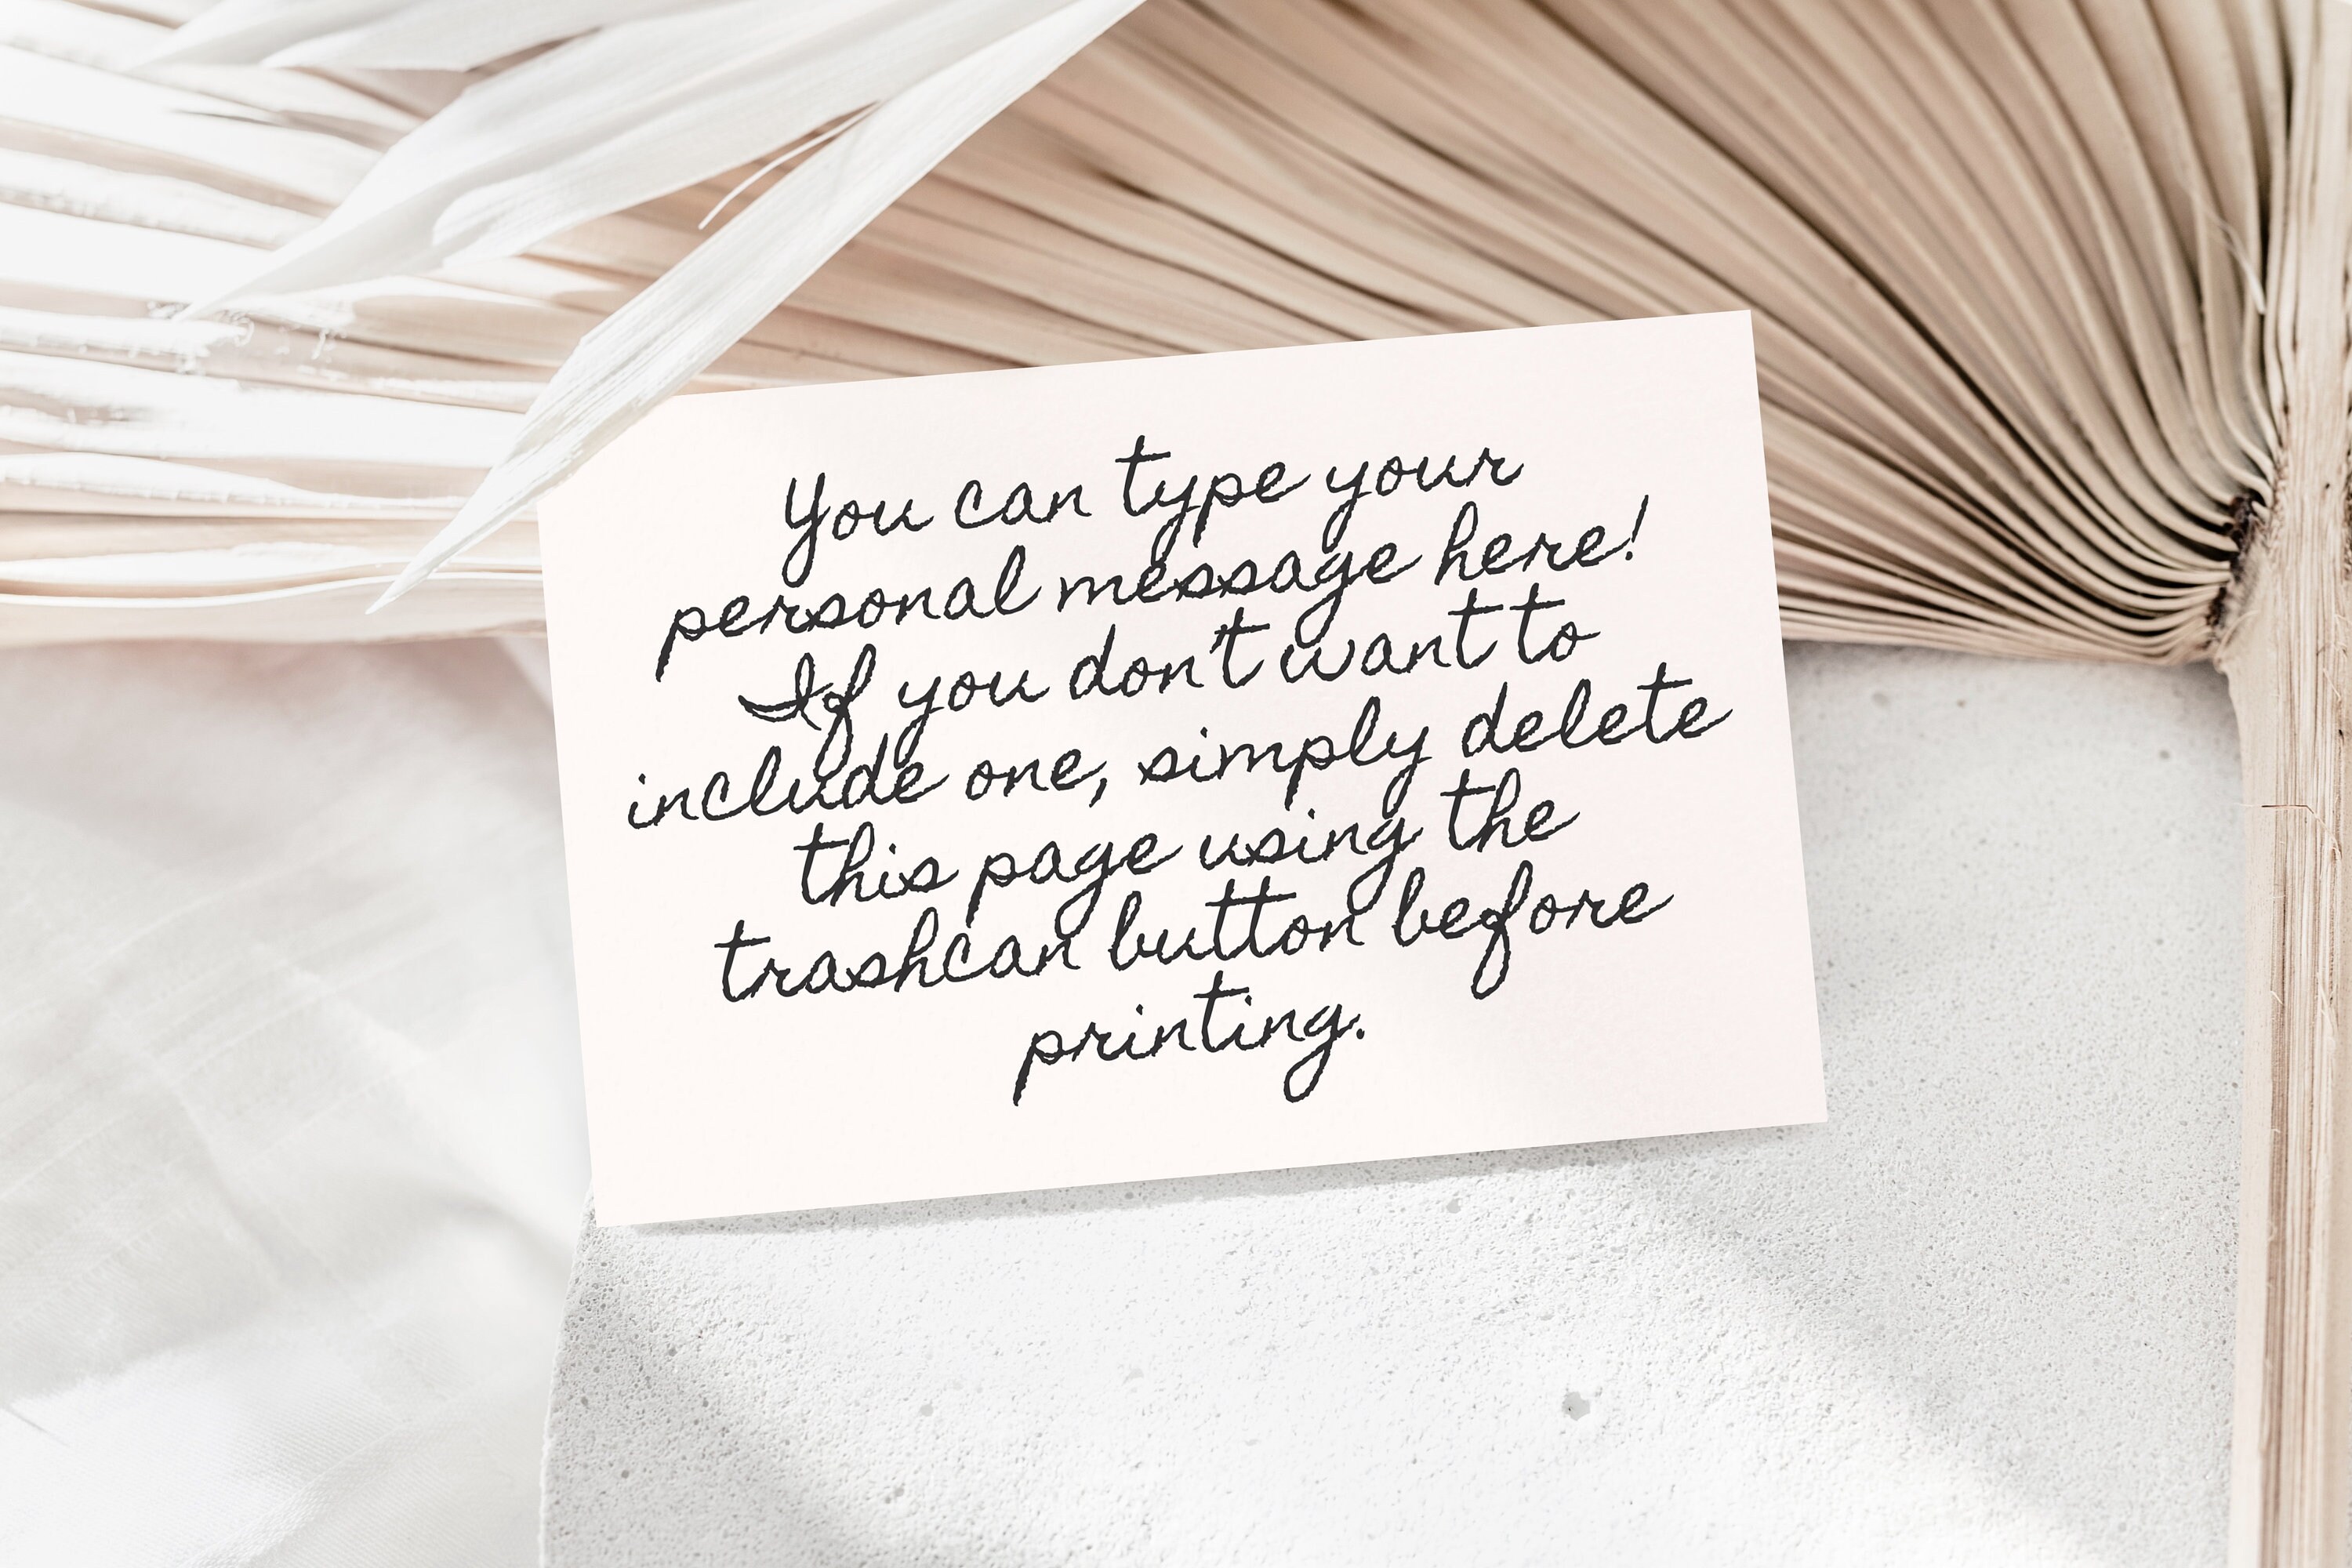 You can type your
personal message here!
If you don't want to
include one, simply delete
this page using the
trashcan button before
printing.